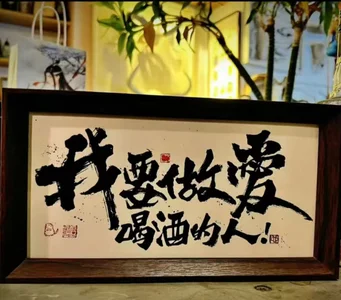 我要做愛
喝酒的人!